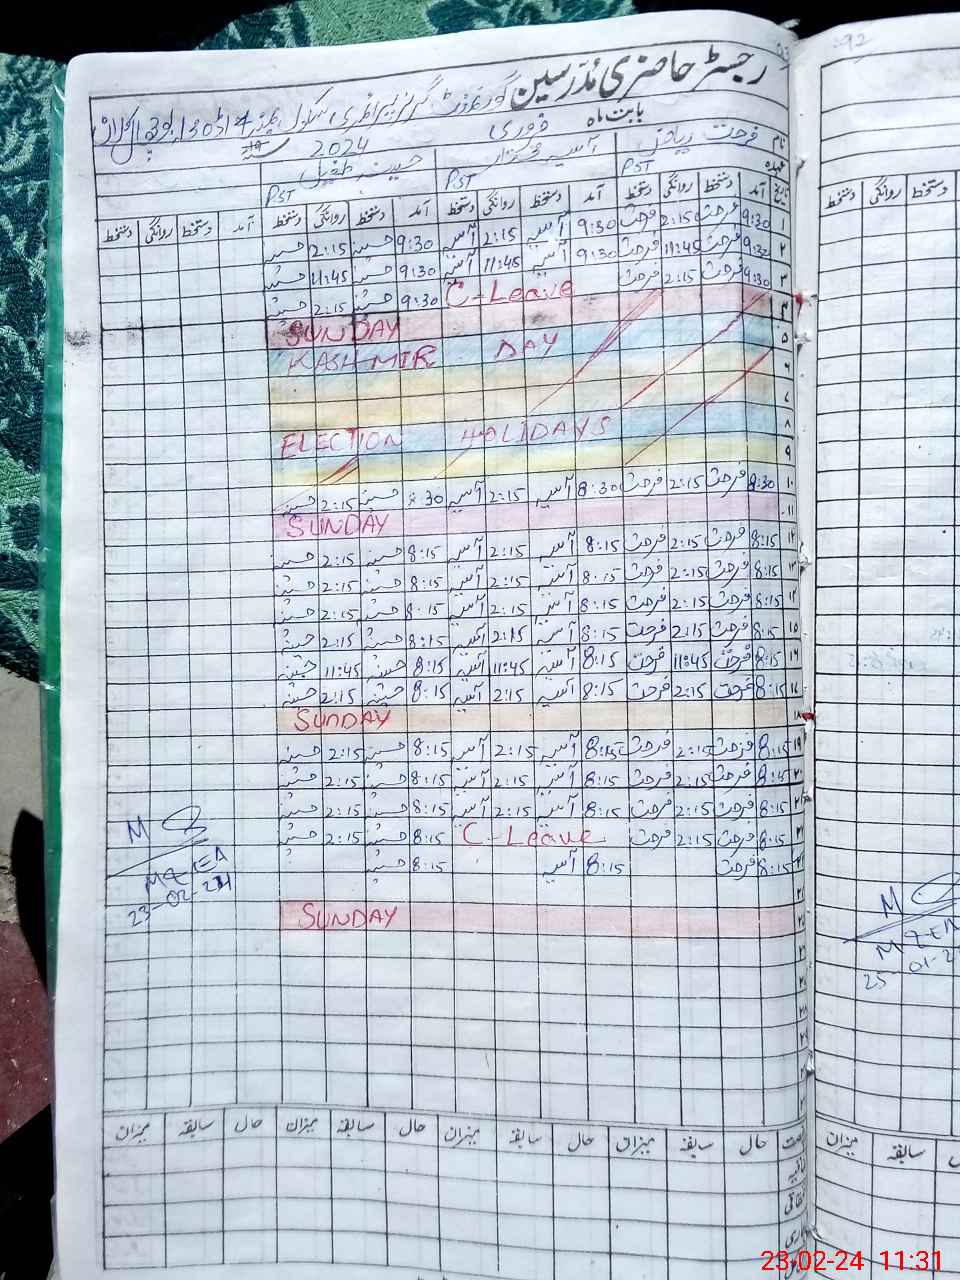 رجسٹر حاضری مُدرسین گورنمنٹ گرلز پرائمری سکول
بابت ماہ فروری 2024
نام فرحت ریاض آسیہ حسینہ طفیل
عہدہ PST PST PST
تاریخ آمد دستخط روانگی دستخط آمد دستخط روانگی دستخط آمد دستخط روانگی دستخط آمد دستخط روانگی دستخط
۱ 9:30 فرحت 2:15 فرحت 9:30 آسیہ 2:15 آسیہ 9:30 حسینہ 2:15 حسینہ
۲ 9:30 فرحت 11:45 فرحت 9:30 آسیہ 11:45 آسیہ 9:30 حسینہ 11:45 حسینہ
۳ 9:30 فرحت 2:15 فرحت C-Leave 9:30 حسینہ 2:15 حسینہ
۴ SUNDAY
۵ KASHMIR DAY
۶
۷
۸ ELECTION HOLIDAYS
۹
۱۰ 8:30 فرحت 2:15 فرحت 8:30 آسیہ 2:15 آسیہ 8:30 حسینہ 2:15 حسینہ
۱۱ SUNDAY
۱۲ 8:15 فرحت 2:15 فرحت 8:15 آسیہ 2:15 آسیہ 8:15 حسینہ 2:15 حسینہ
۱۳ 8:15 فرحت 2:15 فرحت 8:15 آسیہ 2:15 آسیہ 8:15 حسینہ 2:15 حسینہ
۱۴ 8:15 فرحت 2:15 فرحت 8:15 آسیہ 2:15 آسیہ 8:15 حسینہ 2:15 حسینہ
۱۵ 8:15 فرحت 2:15 فرحت 8:15 آسیہ 2:15 آسیہ 8:15 حسینہ 2:15 حسینہ
۱۶ 8:15 فرحت 11:45 فرحت 8:15 آسیہ 11:45 آسیہ 8:15 حسینہ 11:45 حسینہ
۱۷ 8:15 فرحت 2:15 فرحت 8:15 آسیہ 2:15 آسیہ 8:15 حسینہ 2:15 حسینہ
۱۸ SUNDAY
۱۹ 8:15 فرحت 2:15 فرحت 8:15 آسیہ 2:15 آسیہ 8:15 حسینہ 2:15 حسینہ
۲۰ 8:15 فرحت 2:15 فرحت 8:15 آسیہ 2:15 آسیہ 8:15 حسینہ 2:15 حسینہ
۲۱ 8:15 فرحت 2:15 فرحت 8:15 آسیہ 2:15 آسیہ 8:15 حسینہ 2:15 حسینہ
8:15 فرحت 2:15 فرحت C-Leave 8:15 حسینہ 2:15 حسینہ
8:15 فرحت 8:15 آسیہ 8:15 حسینہ
SUNDAY
M
MEA
23-02-24
حال سابقہ میزان حال سابقہ میزان حال سابقہ میزان حال سابقہ میزان
92
دستخط روانگی دستخط
M
MEA
25-01-2
سابقہ میزان
23-02-24 11:31